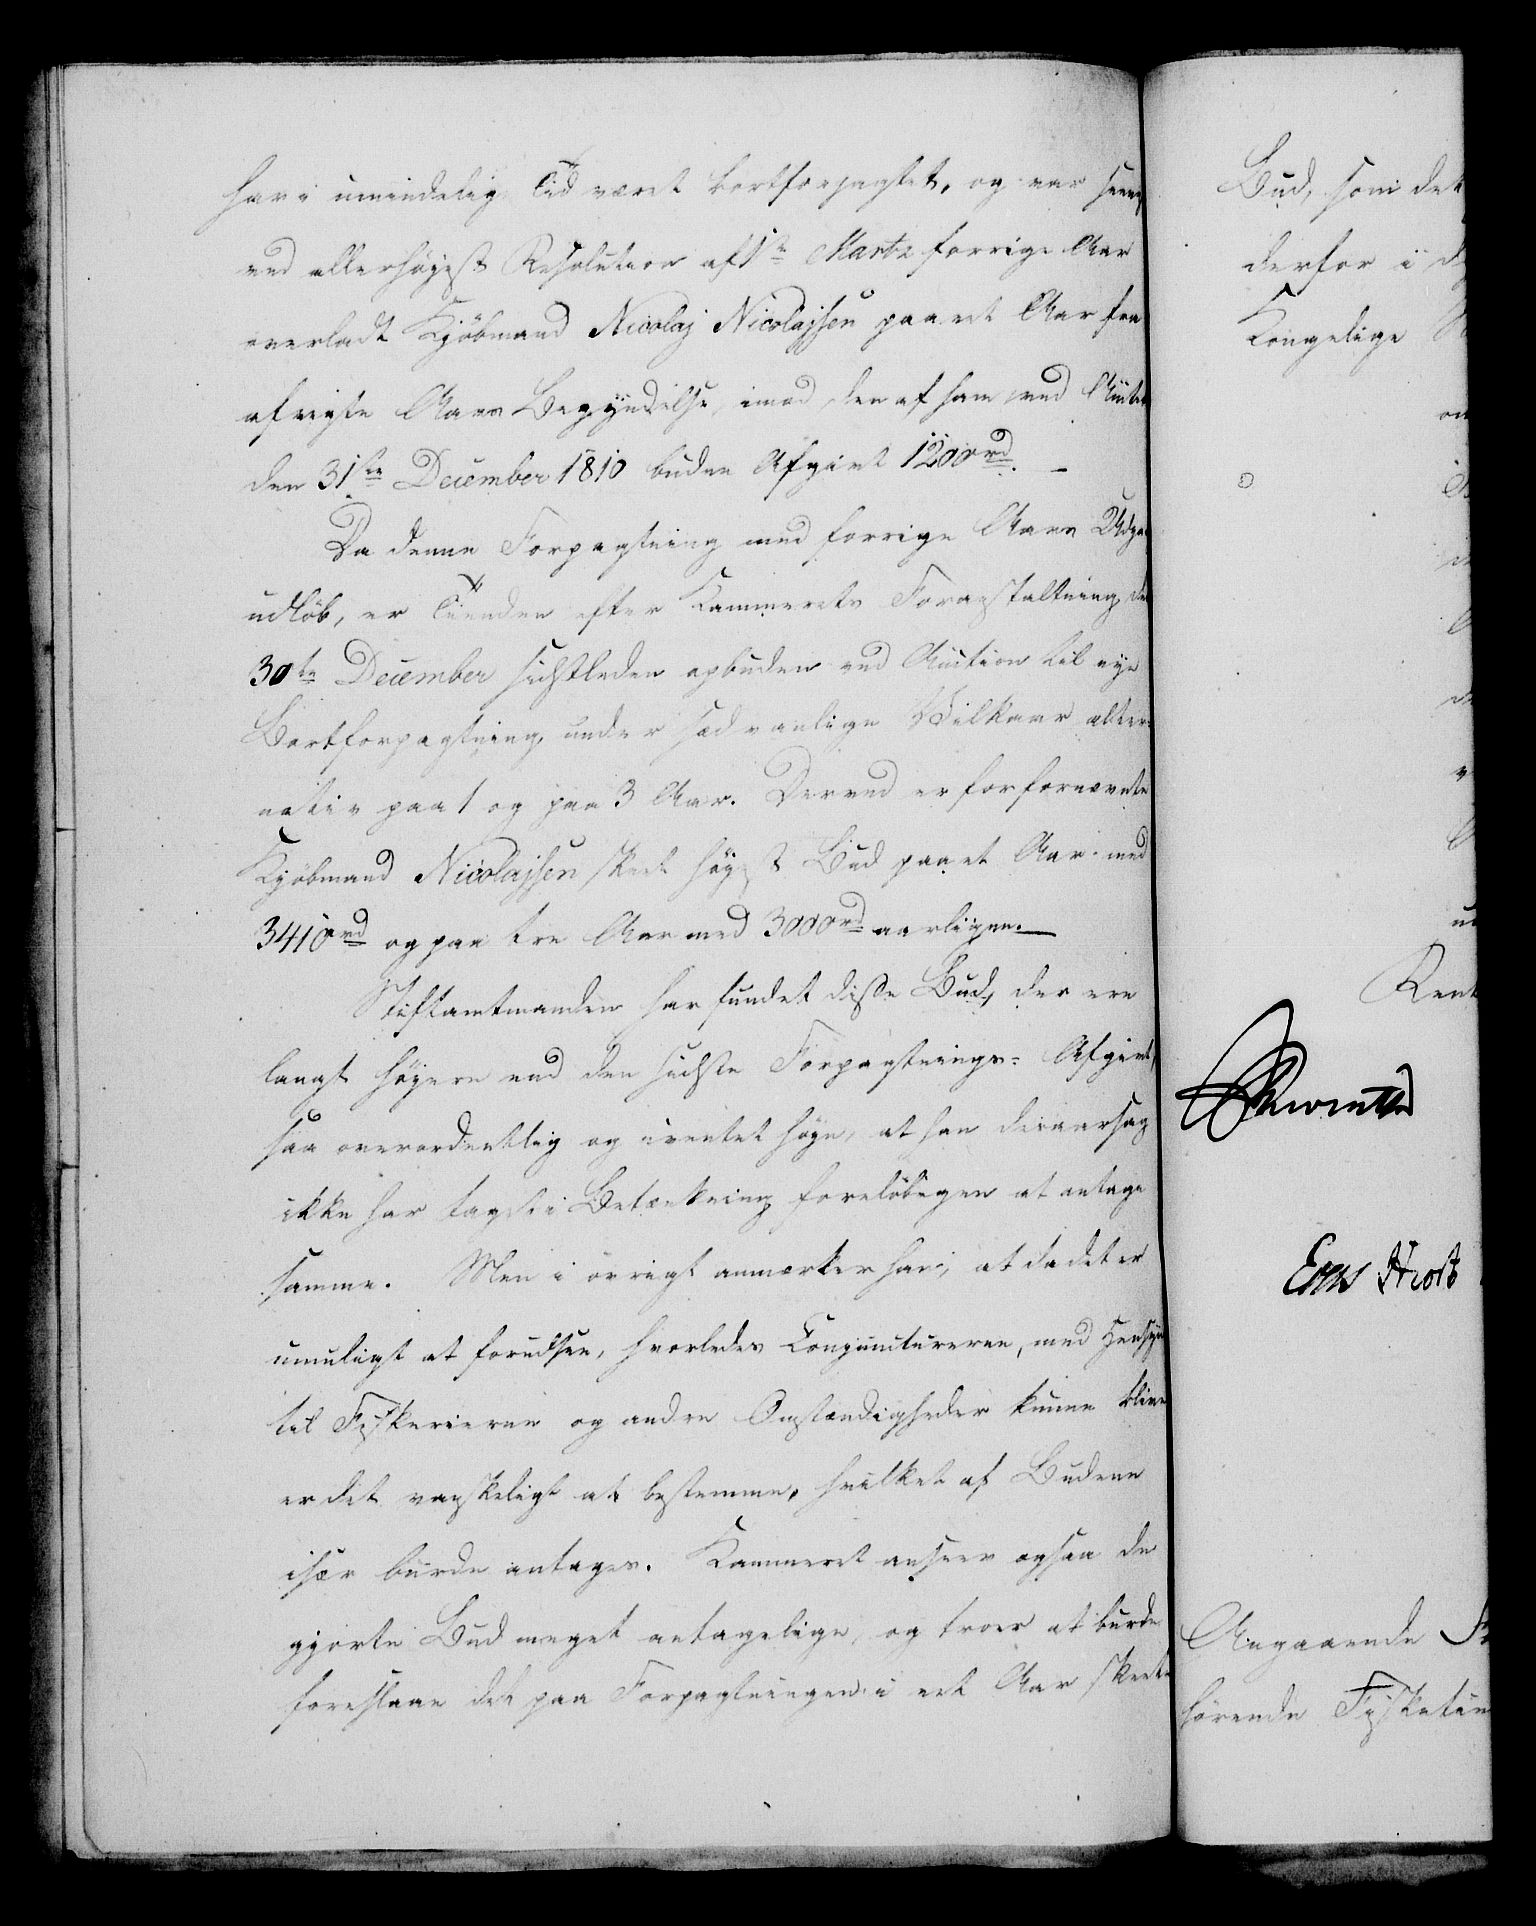 har i umindelig Tid været bortforpagtet, og var senest
ved allerhøyest Resolution af 1ste Martz forrige Aar
overladt Kjöbmand Nicolaj Nicolajsen paa et Aar fra
afvigte Aars Begyndelse, imod den af ham ved Auct
den 31te December 1810 budne Afgivt 1200rd. –
Da denne Forpagtning med forrige Aars Udga
udløb, er Tienden efter Kammerets Foranstaltning de
30te December sidstleden opbuden ved Auction til nye
Bortforpagtning under sædvanlige Vilkaar alter-
nativ paa 1 og paa 3 Aar. Derved er for fornævnte
Kjöbmand Nicolajsen skeet høyest Bud paa et Aar med
3410rd og paa tre Aar med 3000rd aarligen. –
Stiftamtmanden har fundet disse Bud, der ere
langt høyere end den sidste Forpagtnings- Afgivt,
saa overordentlig og uventet høye, at han desaarsag
ikke har taget i Betænkning foreløbigen at antage
samme. Men i øvrigt anmærker han, at da det er
umuligt at forudsee, hvorledes Conjuncturerne, med Hensyn
til Fiskerierne og andre Omstændigheder kunne blive
er det vanskeligt at bestemme, hvilket af Budene
især burde antages. Kammeret anseer ogsaa de
gjorte Bud meget antagelige, og troer at burde
foreslaae det paa Forpagtningen i eet Aar skeete
Bud, som det
derfor i d
Kongelige
Rent
Angaaende
hørende Fisketien